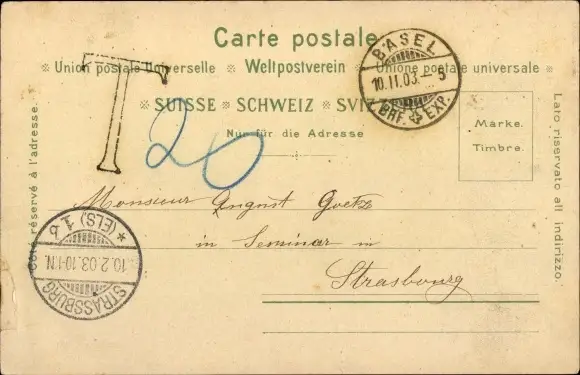 Carte postale.
Union postale universelle * Weltpostverein * Unione postale universale
SUISSE * SCHWEIZ * SVIZZERA
Nur für die Adresse
Côté réservé à l'adresse.
Lato riservato all indirizzo.
Marke.
Timbre.
T
20
BASEL
10.II.03.–5
BRF. EXP.
Monsieur August Goetz
in Seminar in
Strasbourg
STRASSBURG
10.2.03.10-11N.
* (ELS.) 1b